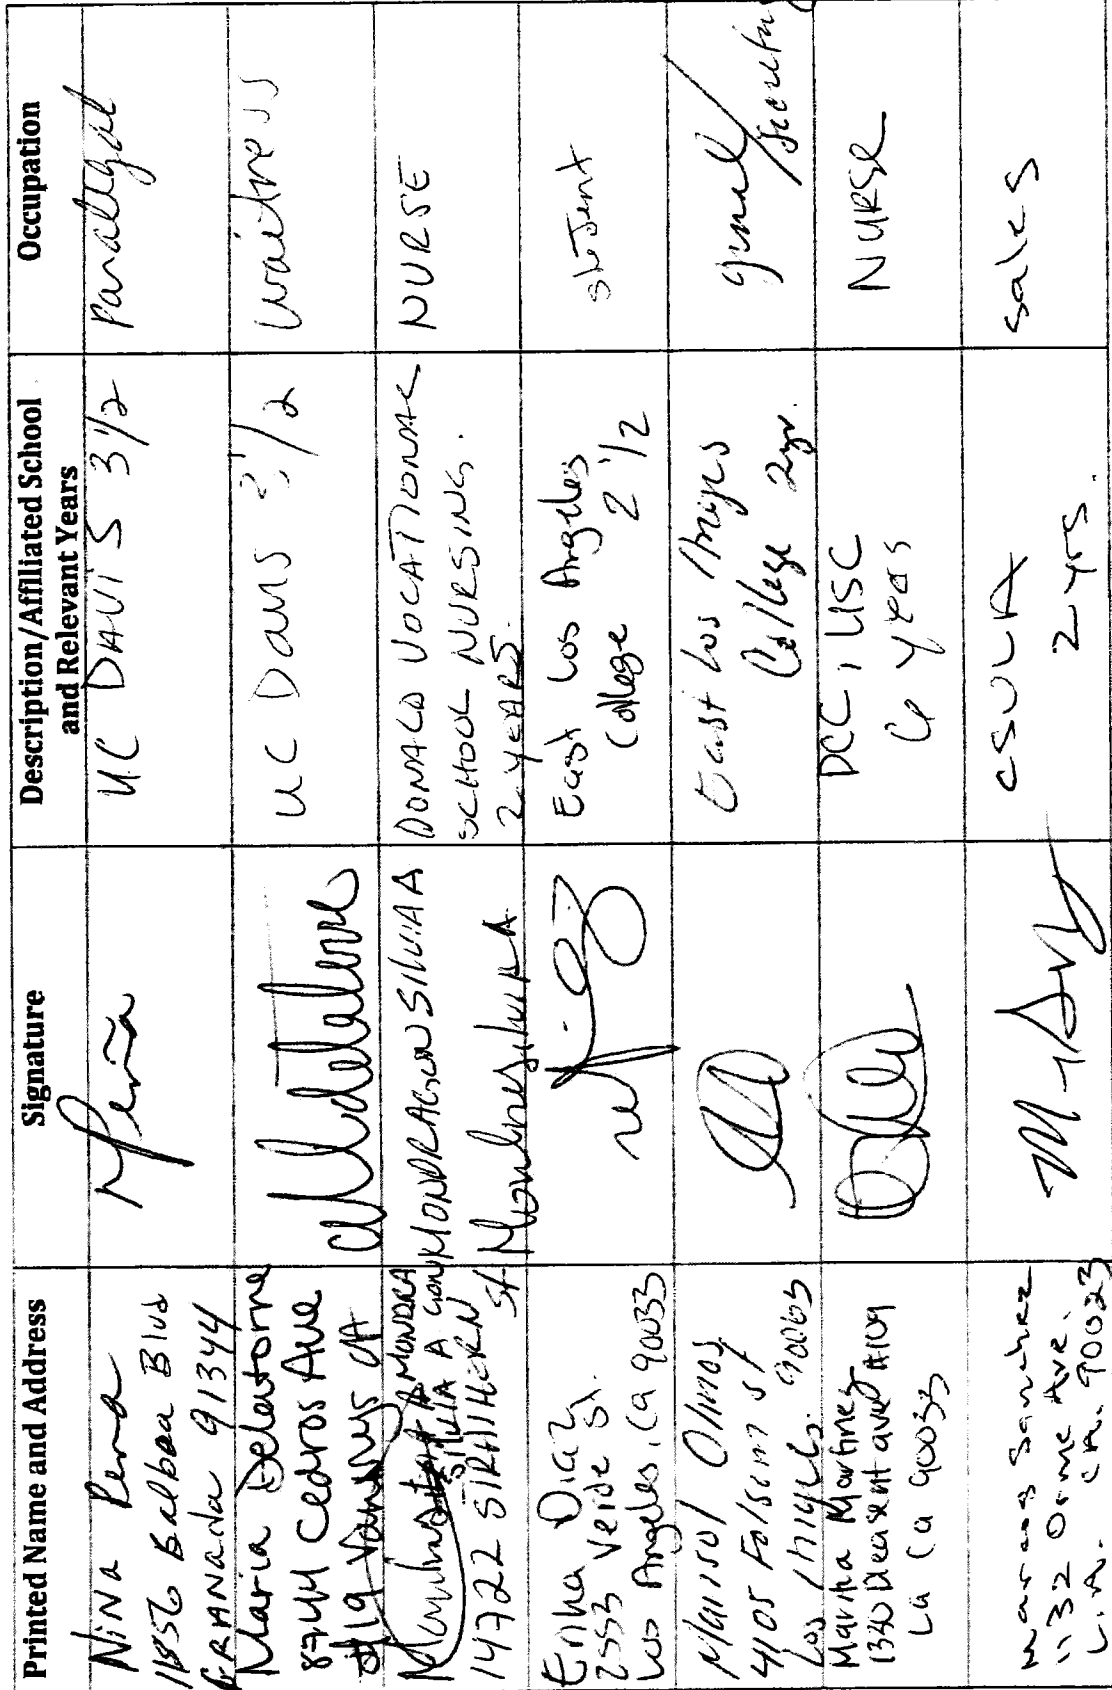 Printed Name and Address
Signature
Description/Affiliated School
and Relevant Years
Occupation
NiNA Pena
11856 Balboa Blvd
GRANada 91344
Peña
UC DAVIS 3 1/2
Paralegal
Maria Delatorre
8744 Cedros Ave
#19 Van Nuys CA
UC Davis 1/2
Waitress
MONDRA
SILVIA A GON
14722 STRATHERN St
MONDRAGON SILVIA A
DONALD VOCATIONAL
SCHOOL NURSING.
2 YEARS.
NURSE
Erika Diaz
2553 Verde St.
Los Angeles, Ca 90033
East Los Angeles
College 2 1/2
student
Marisol Olmos
4105 Folsom St
Los Angeles. 90063
East Los Angeles
College 2yr.
general/secretary
Martha Martinez
1330 Pleasant ave #109
La Ca 90033
PCC, USC
6 years
NURSE
Marcos Sanchez
1132 Orme Ave.
L.A. CA. 90023
CSULA
2 yrs.
Sales